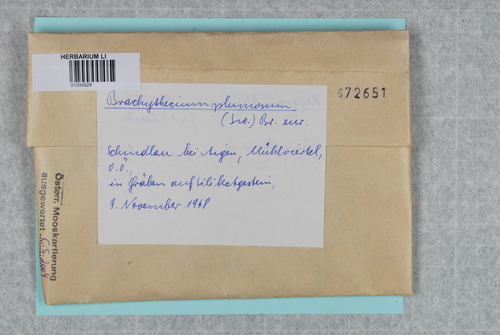 HERBARIUM LI
672651
Brachythecium plumosum
(Sw.) Br. eur.
Schindlau bei Aigen, Mühlviertel,
O.Ö.,
in Gräben auf Silikatgestein,
9. November 1968
Österr. Mooskartierung
ausgewertet